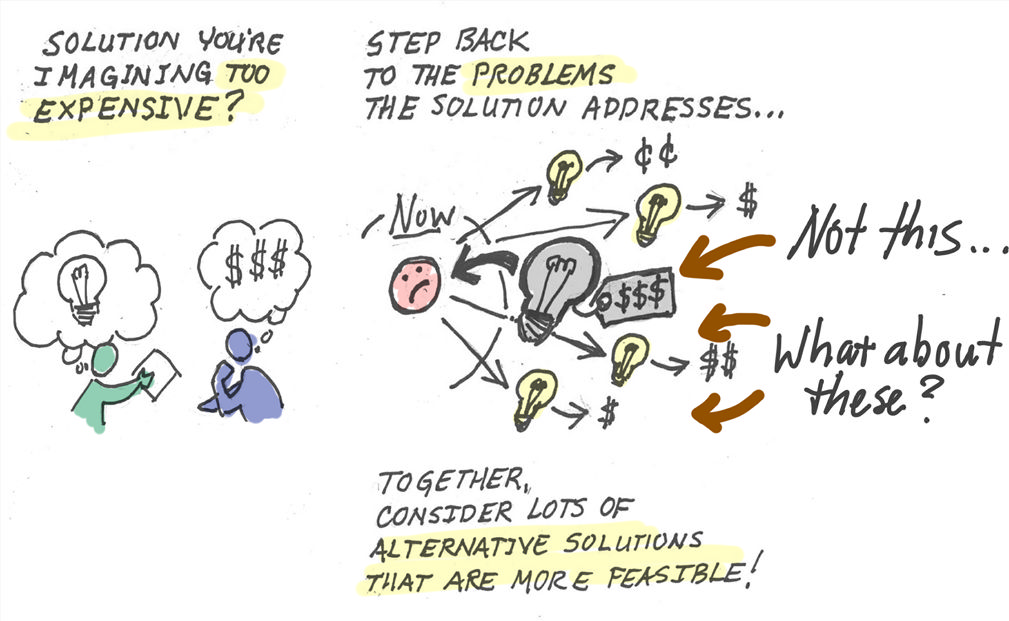 SOLUTION YOU'RE
IMAGINING TOO
EXPENSIVE?
STEP BACK
TO THE PROBLEMS
THE SOLUTION ADDRESSES...
$$$
NOW
¢¢
$
$$$
$$
$
Not this...
What about
these?
TOGETHER,
CONSIDER LOTS OF
ALTERNATIVE SOLUTIONS
THAT ARE MORE FEASIBLE!